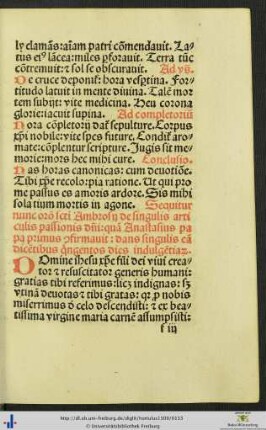 ly clamãs: aĩam patri cõmendauit. La-
tus eiꝰ lãcea: miles ꝑforauit. Terra tũc
cõtremuit: ⁊ sol se obscurauit. Ad vñ.
De cruce deponiť: hora vesꝑtina. For-
titudo latuit in mente diuina. Talẽ mor
tem subijt: vite medicina. Heu corona
glorie: iacuit supina. Ad completoriũ
Hora cõpletorij dať sepulture. Corpus
xp̃i nobile: vite spes future. Condiť aro-
mate: cõplentur scripture. Jugis sit me-
morie: mors hec mihi cure. Conclusio.
Has horas canonicas: cum deuotiõe.
Tibi xp̃e recolo: pia ratione. Ut qui pro
me passus es amoris ardore. Sis mihi
solatium mortis in agone. Sequitur
nunc orõ sc̃ti Ambrosij de singulis arti
culis passionis dñi: quã Anastasius pa
pa primus ꝯfirmauit: dans singulis eã
dicẽtibus qͥngentos dies indulgẽtiaꝝ.
Domine ihesu xp̃e fili dei viui crea-
tor ⁊ resuscitator generis humani:
gratias tibi referimus: licꝫ indignas: sꝫ
vtinã deuotas ⁊ tibi gratas: qꝛ ꝓ nobis
miserrimus d̾ celo descendisti: ⁊ ex bea-
tissima virgine maria carnẽ assumpsisti:
f iij
http://dl.ub.uni-freiburg.de/diglit/hortulus1500/0115
© Universitätsbibliothek Freiburg